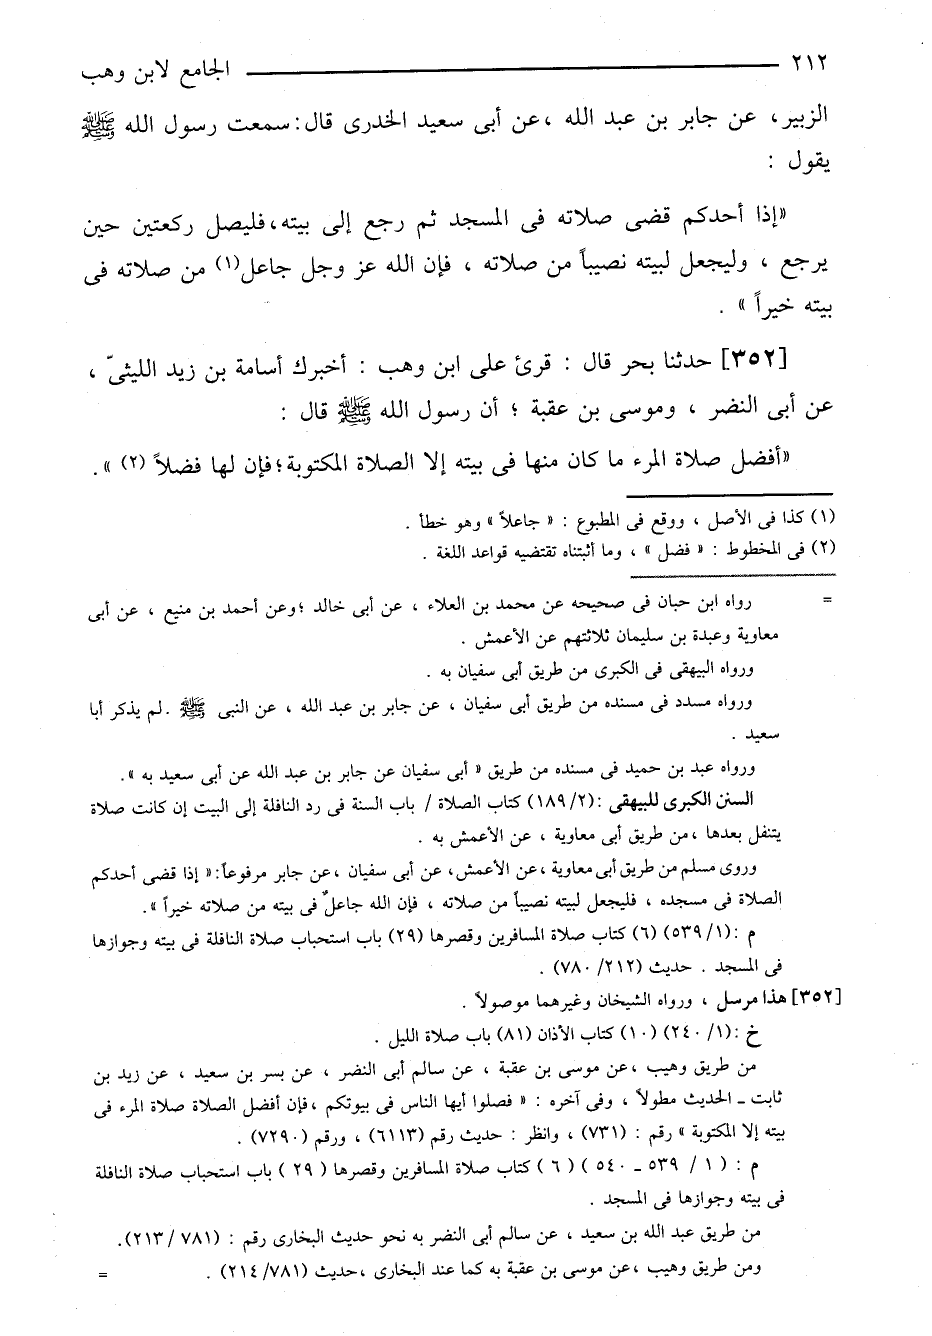 ٢١٢ الجامع لابن وهب
الزبير، عن جابر بن عبد الله ،عن أبى سعيد الخدرى قال: سمعت رسول الله ﷺ
يقول :
«إذا أحدكم قضى صلاته فى المسجد ثم رجع إلى بيته،فليصل ركعتين حين
يرجع ، وليجعل لبيته نصيباً من صلاته ، فإن الله عز وجل جاعل(١) من صلاته فى
بيته خيراً » .
[٣٥٢] حدثنا بحر قال : قرئ على ابن وهب : أخبرك أسامة بن زيد الليثىّ ،
عن أبى النضر ، وموسى بن عقبة ؛ أن رسول الله ﷺ قال :
«أفضل صلاة المرء ما كان منها فى بيته إلا الصلاة المكتوبة؛فإن لها فضلاً (٢) ».
(١) كذا فى الأصل ، ووقع فى المطبوع : « جاعلاً » وهو خطأ .
(٢) فى المخطوط : « فضل » ، وما أثبتناه تقتضيه قواعد اللغة .
= رواه ابن حبان فى صحيحه عن محمد بن العلاء ، عن أبى خالد ؛وعن أحمد بن منيع ، عن أبى
معاوية وعبدة بن سليمان ثلاثتهم عن الأعمش .
ورواه البيهقى فى الكبرى من طريق أبى سفيان به .
ورواه مسدد فى مسنده من طريق أبى سفيان ، عن جابر بن عبد الله ، عن النبى ﷺ .لم يذكر أبا
سعيد .
ورواه عبد بن حميد فى مسنده من طريق « أبى سفيان عن جابر بن عبد الله عن أبى سعيد به ».
السنن الكبرى للبيهقى :(٢/ ١٨٩) كتاب الصلاة / باب السنة فى رد النافلة إلى البيت إن كانت صلاة
يتنفل بعدها ،من طريق أبى معاوية ، عن الأعمش به .
وروى مسلم من طريق أبى معاوية ،عن الأعمش، عن أبى سفيان ،عن جابر مرفوعاً:« إذا قضى أحدكم
الصلاة فى مسجده ، فليجعل لبيته نصيباً من صلاته ، فإن الله جاعلٌ فى بيته من صلاته خيراً ».
م :(١/ ٥٣٩) (٦) كتاب صلاة المسافرين وقصرها (٢٩) باب استحباب صلاة النافلة فى بيته وجوازها
فى المسجد . حديث (٢١٢/ ٧٨٠) .
[٣٥٢] هذا مرسل ، ورواه الشيخان وغيرهما موصولاً .
خ :(١/ ٢٤٠) (١٠) كتاب الأذان (٨١) باب صلاة الليل .
من طريق وهيب ،عن موسى بن عقبة ، عن سالم أبى النضر ، عن بسر بن سعيد ، عن زيد بن
ثابت ـ الحديث مطولاً ، وفى آخره : « فصلوا أيها الناس فى بيوتكم ،فإن أفضل الصلاة صلاة المرء فى
بيته إلا المكتوبة » رقم : (٧٣١) ، وانظر : حديث رقم (٦١١٣) ، ورقم (٧٢٩٠) .
م : ( ١ / ٥٣٩ ـ ٥٤٠ ) ( ٦ ) كتاب صلاة المسافرين وقصرها ( ٢٩ ) باب استحباب صلاة النافلة
فى بيته وجوازها فى المسجد .
من طريق عبد الله بن سعيد ، عن سالم أبى النضر به نحو حديث البخارى رقم : (٢١٣/٧٨١).
ومن طريق وهيب ،عن موسى بن عقبة به كما عند البخارى ،حديث (٢١٤/٧٨١) . =